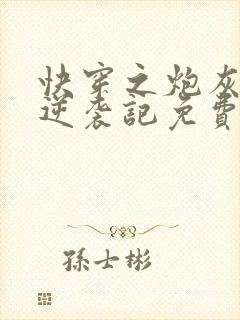 快穿之炮灰
逆袭記免費
孫士彬